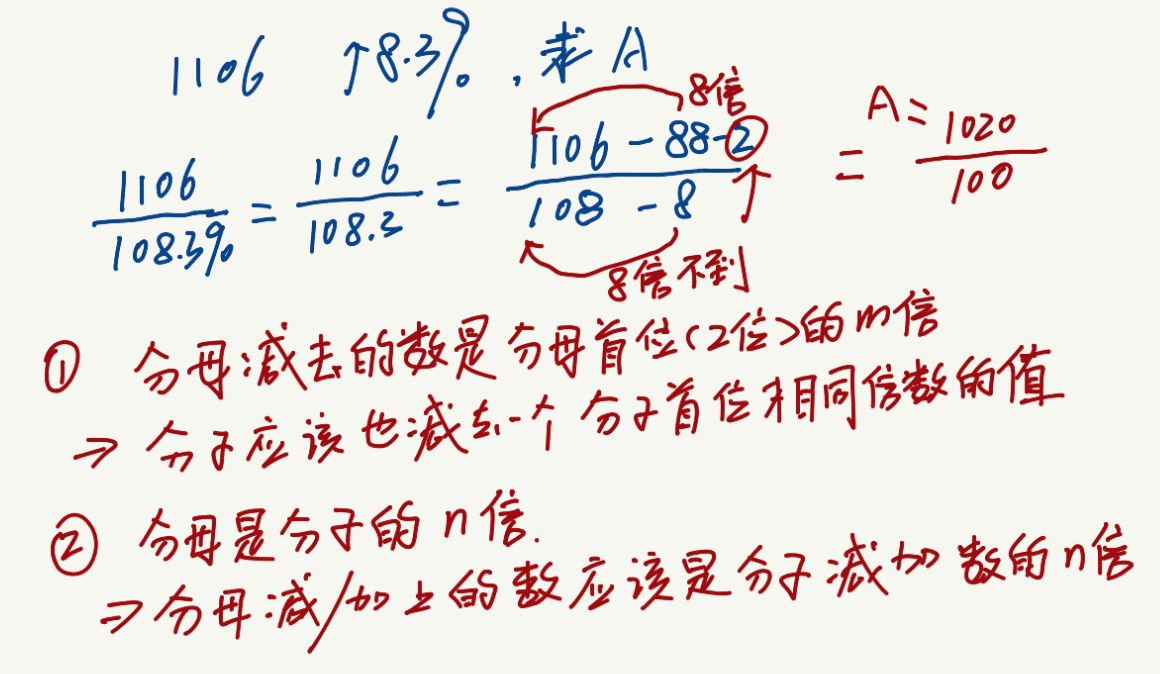 1106 ↑8.3%，求A
8倍
1106/108.3% = 1106/108.3 = (1106-88-2)/(108-8) = A=1020/100
8倍不到
① 分母减去的数是分母首位(2位)的m倍
⇒ 分子应该也减去一个分子首位相同倍数的值
② 分母是分子的n倍.
⇒分母减/加上的数应该是分子减加数的n倍